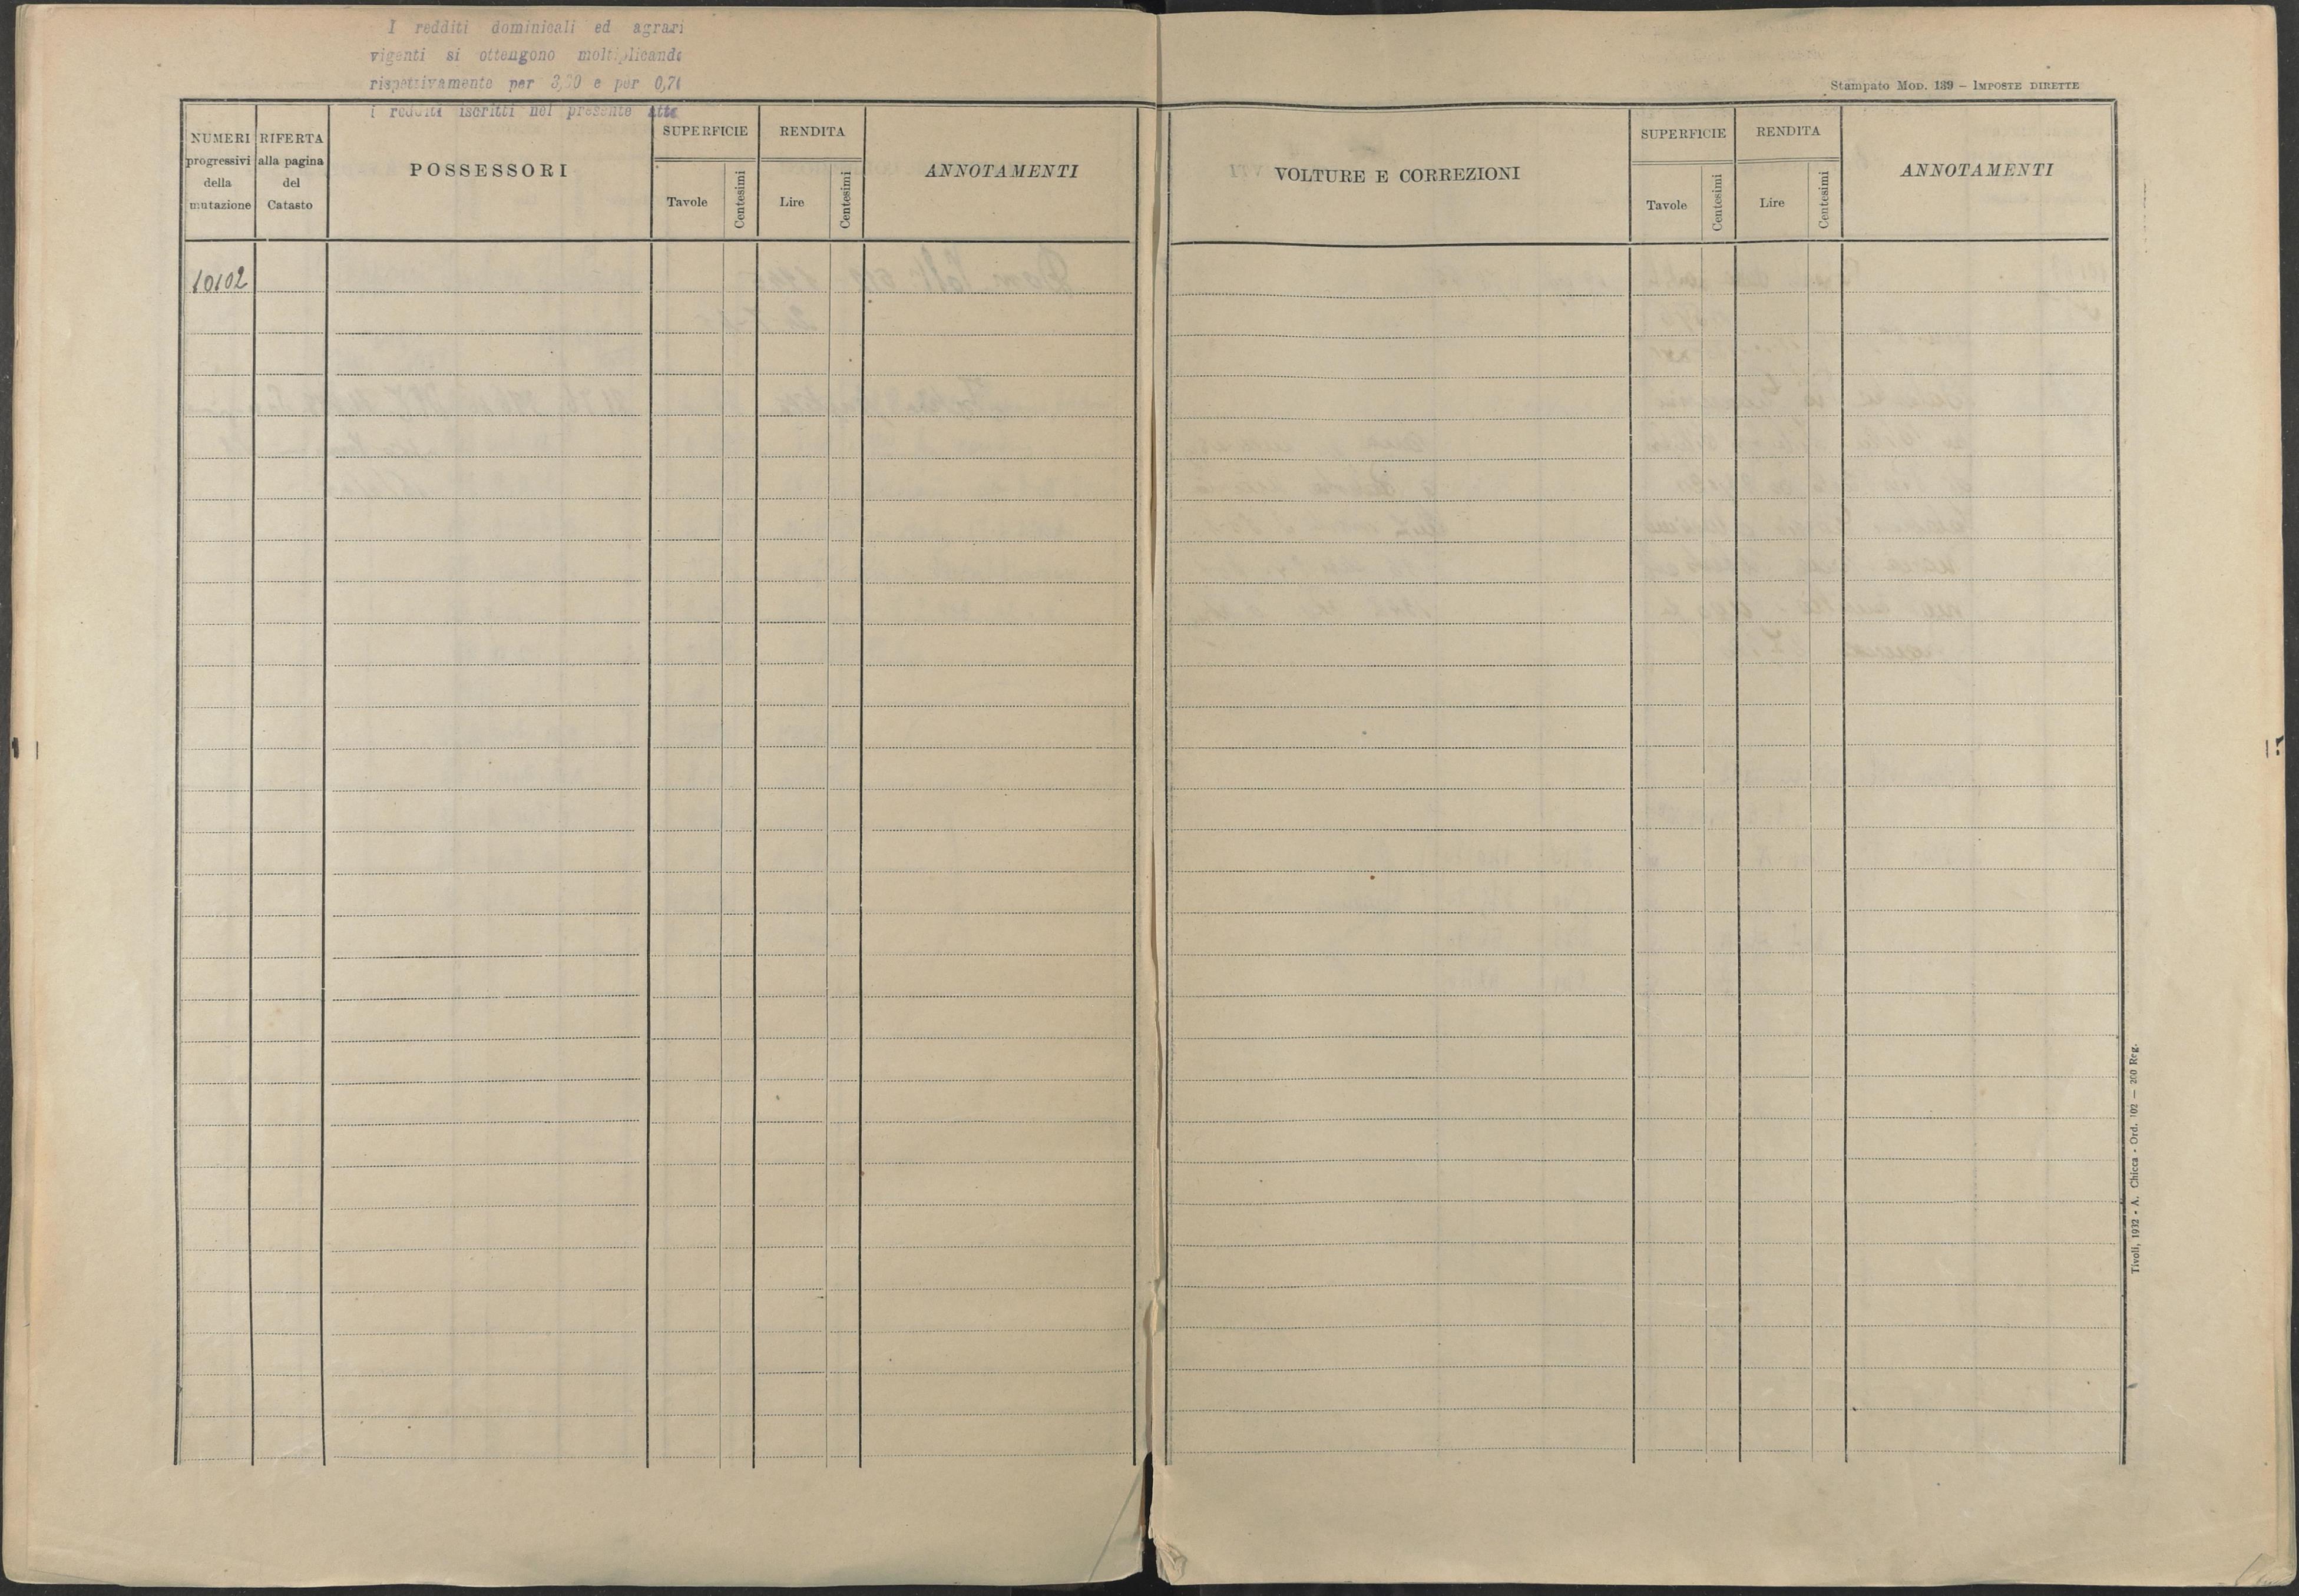 I redditi dominicali ed agrari
vigenti si ottengono moltiplicando
rispettivamente per 3,20 e per 0,70
i redditi iscritti nel presente Atto
Stampato MOD. 139 – IMPOSTE DIRETTE
NUMERI progressivi della mutazione
RIFERTA alla pagina del Catasto
POSSESSORI
SUPERFICIE
Tavole
Centesimi
RENDITA
Lire
Centesimi
ANNOTAMENTI
VOLTURE E CORREZIONI
SUPERFICIE
Tavole
Centesimi
RENDITA
Lire
Centesimi
ANNOTAMENTI
10102
Tivoli, 1932 - A. Chicca - Ord. 102 — 200 Reg.